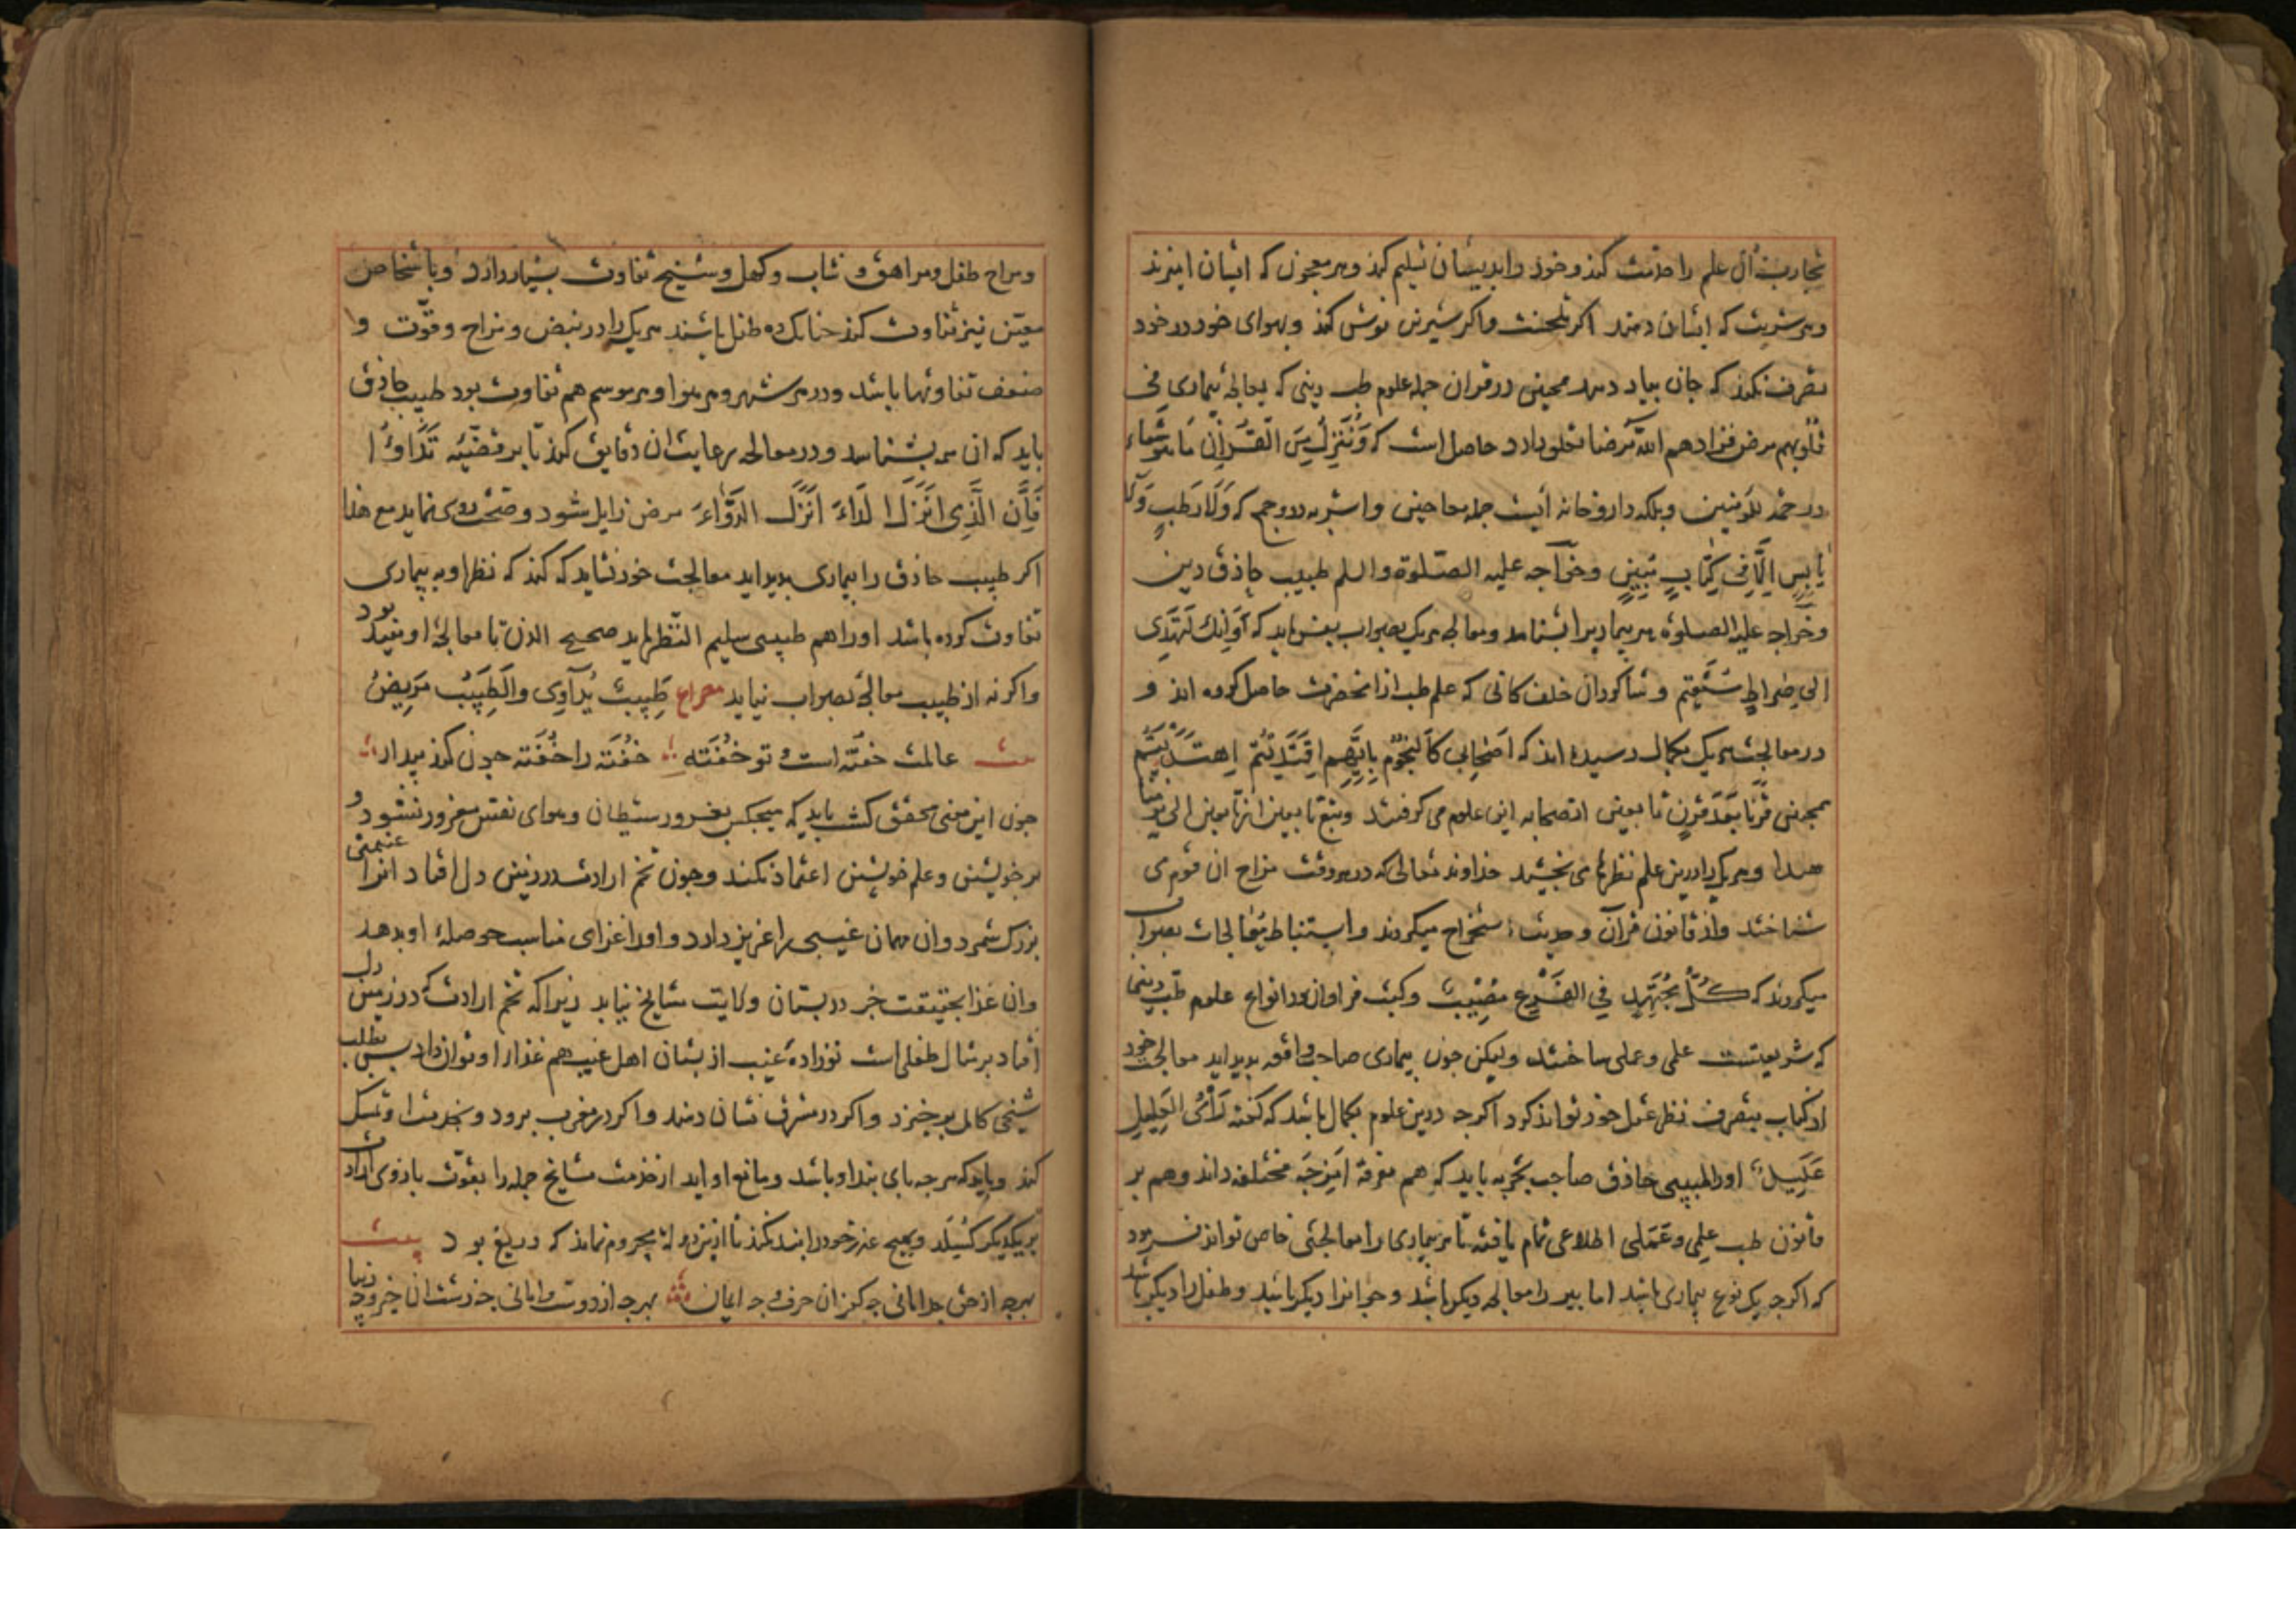 تجارب آن علم را خدمت کند و خود را بدیشان تسلیم کند و هر معجون که ایشان امیزند
و هر شربت که ایشان دهند اکر تلخست و اکر شیرین نوش کند و بهوای خود در خود
تصرف نکند که جان بباد دهد همچنین در قران جمله علوم طب دینی که معالجهٔ بیماری فی
قلوبهم مرض فزادهم الله مرضا تعلق دارد حاصل است که وَنُنَزِّلُ مِنَ القُرآنِ مَا هُوَ شِفَاء
و رحمة للمؤمنین و بلکه داروخانه ایست جمله معاجین و اشربه درو جمع که وَلَا رَطبٍ وَلَا
یَابِسٍ اِلَّا فِی کِتَابٍ مُبِینٍ و خواجه علیه الصلوة و السلم طبیب حاذق دین
و خواجه علیه الصلوة هر بیمار را بشناسد و معالجه هر یک بصواب بفرماید که وَاِنَّکَ لَتَهدِی
اِلی صِرَاطٍ مُستَقِیم و شاکردان خلف کانی که علم طب از انحضرت حاصل کرده اند و
در معالجت هر یک بکمال رسیده اند که اَصحَابِی کَالنُجُوم بِاَیِّهِم اقتَدَیتُم اِهتَدَیتُم
همچنین قرنا بَعدَ قَرنٍ تابعین از صحابه این علوم می کرفتند و تبع تابعین از تابعین الی یومنا
هذا و هر یک را درین علم نظرها می بخشید خداوند تعالی که در هر وقت مزاج ان قوم می
شناختند و از قانون قرآن و حدیث استخراج میکردند و استنباط معالجات بصواب
میکردند که کُلُّ مُجتَهِدٍ فِی الفَرعِ مُصِیبٌ و کتب فراوان در انواع علوم طب دینی
که شریعتست علمی و عملی ساختند ولیکن چون بیماری صاحب واقعه بدید اید معالجه خود
از کتاب بتصرف نظر عقل خود نتواند کرد اکر چه درین علوم بکمال باشد که کفته رَأیُ العَلِیلِ
عَلِیلٌ او را طبیبی حاذق صاحب تجربه باید که هم معرفة اَمزِجَه مختلفه داند و هم بر
قانون طب علمی و عَمَلی اطلاعی تمام یافته تا هر بیماری را معالجتی خاص تواند فرمود
که اکر چه یک نوع بیماری باشد اما پیر را معالجه دیکر باشد و جوانرا دیکر باشد و طفل را دیکر باشد
و مزاج طفل و مراهق و شاب و کهل و شیخ تفاوت بسیار دارد و باشخاص
معین نیز تفاوت کند چنانک ده طفل باشند هر یک را در نبض و مزاج و قوّت و
ضعف تفاوتها باشد و در هر شهر و هر هوا و هر موسم هم تفاوت بود طبیب حاذق
باید که ان همه بشناسد و در معالجه رعایت ان دقایق کند تا بر قضیّهٔ تَدَاوَوُا
فَاِنَّ الَّذِی اَنزَلَ الدَاءَ اَنزَلَ الدَّوَاءَ مرض زایل شود و صحت روی نماید مع هذا
اکر طبیب حاذق را بیماری بدید اید معالجت خود نشاید که کند که نظر او به بیماری
تفاوت کرده باشد او را هم طبیبی سلیم النّظر باید صحیح الذهن تا معالجهٔ او مفید بود
و اکرنه از طبیب معالجهٔ بصواب نیاید مصراع طَبِیبٌ یُدَاوِی وَالطَبِیبُ مَرِیضُ
بیت عالمت خفته است و تو خُفته خُفته را خُفته چون کند بیدار
چون این معنی محقق کشت باید که هیچکس بغرور شیطان و هوای نفس مغرور نشود و
بر خویشتن و علم خویشتن اعتماد نکند و چون تخم ارادت در زمین دل افتاد انرا غنیمتی
بزرک شمرد و ان مهمان غیبی را عزیز دارد و او را غذای مناسب حوصلهٔ او بدهد
و ان غذا بحقیقت جز در بستان ولایت مشایخ نیابد زیرا که تخم ارادت که در زمین دل
افتاد بر مثال طفلی است نوزادهٔ غیب از بستان اهل غیب هم غذا را او توان داد بس بطلب
شیخی کامل بر خیزد و اکر در مشرق نشان دهند و اکر در مغرب برود و بخدمت او تمسک
کند و باید که هر چه بای بند او باشد و مانع او اید از خدمت مشایخ جمله را بقوّت بازوی ارادت
بر یکدیکر کسلد و بهیچ عذر خود را بند نکند تا ازین دولت محروم نماند که دریغ بود بیت
بهرچه از حق جدا مانی چه کفر ان حرف و چه ایمان بهرچه از دوست وامانی چه زشت ان خیر و چه زیبا